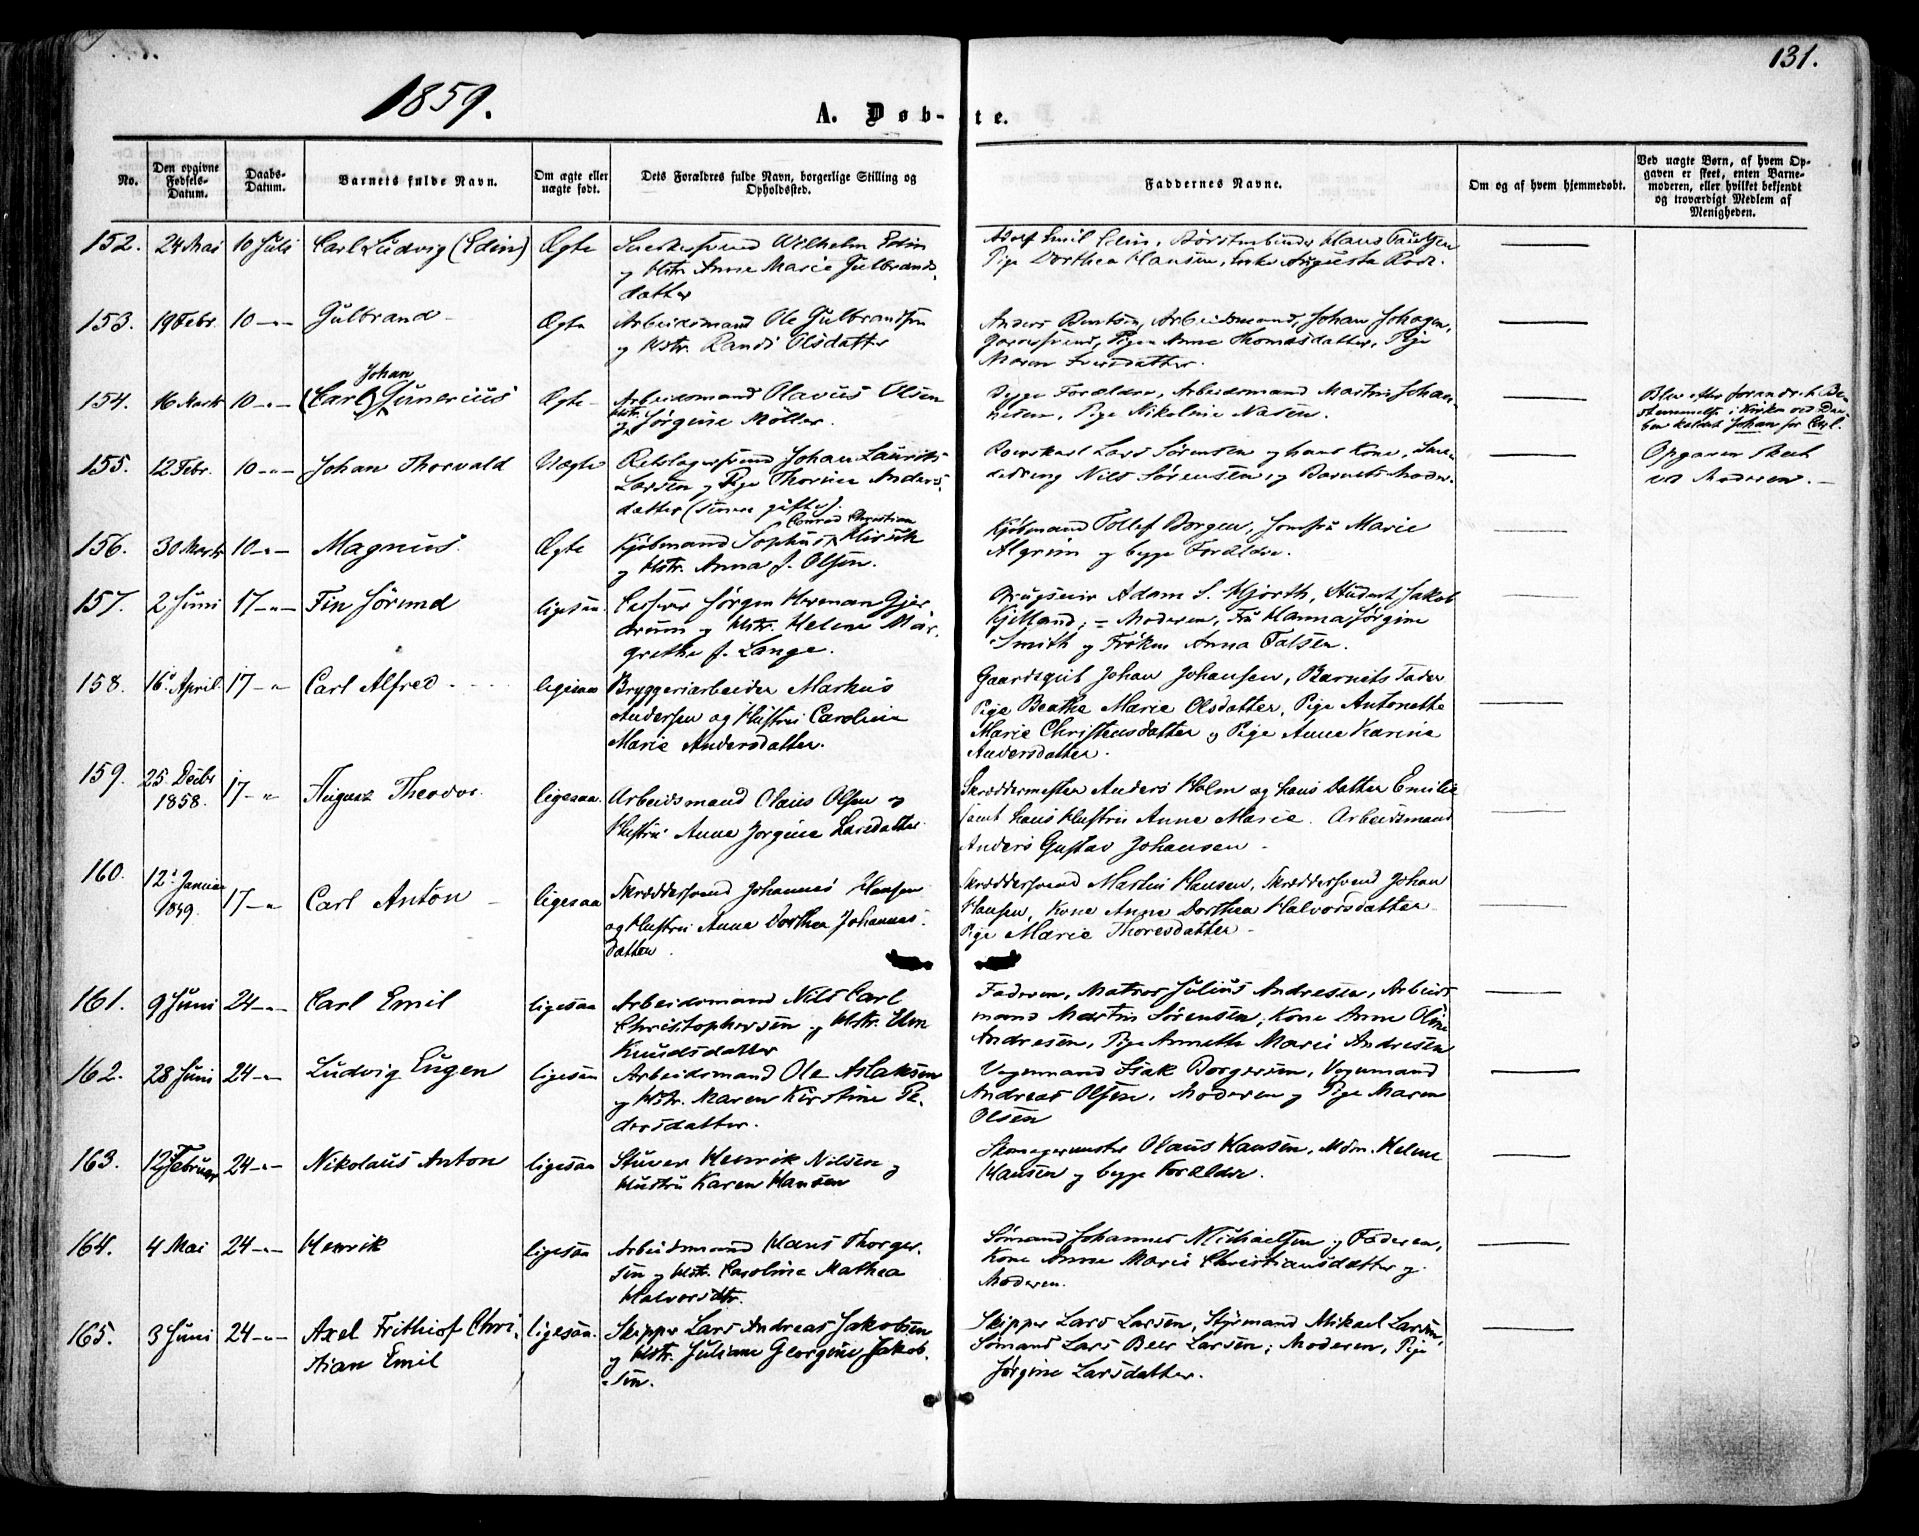 131.
1859.
A. Døb-te.
No.
Den opgivne Fødsels-Datum.
Daabs-Datum.
Barnets fulde Navn.
Om ægte eller uægte født.
Dets Forældres fulde Navn, borgerlige Stilling og Opholdssted.
Faddernes Navne.
Om og af hvem hjemmedøbt.
Ved uægte Børn, af hvem Opgaven er skeet, enten Barnemoderen, eller hvilket bekjendt og troværdigt Medlem af Menigheden.
152. 24 Mai 10 Juli Carl Ludvig (Edin) Ægte
Wilhelm Edin
og Hstr. Anne Marie Gulbrands-
datter
Adolf Emil Edin, Børstenbinder Hans Paulsen
Pige Dorthea Hansen, Enke Augusta
153. 19 Febr. 10-"- Gulbrand Ægte
Arbeidsmand Ole Gulbrandsen
og Hstr. Randi Olsdatter
Anders Berntsen, Arbeidsmand, Johan
Pigen Anne Thomasdatter, Pige
Maren Iversdatter.
154. 16 Marts 10-"- (Carl) Johan Gunerius Ægte
Arbeidsmand Olavus Olsen
og Hstr. Jørgine Møller.
Begge Forældre, Arbeidsmand Martin Johan-
nesen, Pige Nikoline
Blev efter forandret Be-
stemmelse i Kirken ved Daa-
ben kaldet Johan for Carl.
155. 12 Febr. 10-"- Johan Thorvald Uægte
Johan Laurits
Larsen og Pige Thorine Anders-
datter (senere gifte).
Lars Sørensen og hans Kone, Sme-
dedreng Nils Sørensen og Barnets Moder.
Opgaven skeet
ved Moderen.
156. 30 Marts 10-"- Magnus. Ægte
Conrad Christian
Kjøbmand Sophus
og Hstr. Anna f. Olsen.
Kjøbmand Tollef Borgen, Jomfru Marie
Algrim og begge Forældre.
157. 2 Juni 17-"- Fin Jörund ligesaa.
Jørgen Herman Gjer-
drum og Hstr. Helene Mar-
grethe f. Lange.
Adam S. Hjorth, Student Jakob
Kjelland; Moderen, Fru Hanna Jørgine
Smith og Frøken Anna Falsen.
158. 16 April 17-" Carl Alfred ligesaa
Bryggeriarbeider Markus
Andersen og Hustru Caroline
Marie Andersdatter.
Gaardsgut Johan Johansen, Barnets Fader
Pige Beathe Marie Olsdatter, Pige Antonette
Marie Christensdatter og Pige Anne Karine
Andersdatter.
159. 25 Decbr 1858. 17-" August Theodor ligesaa.
Arbeidsmand Claus Olsen og
Hustru Anne Jørgine Larsdatter.
Skræddermester Anders Holm og hans Datter Emilie
samt hans Hustru Anne Marie. Arbeidsmand
Anders Gustav Johansen
160. 12 Januar 1859. 17-" Carl Anton ligesaa
Skræddersvend Johannes Hansen
og Hustru Anne Dorthea Johannes-
datter.
Skræddersvend Martin Hansen, Skræddersvend Johan
Hansen, Kone Anne Dorthea Halvorsdatter
Pige Marie Thoresdatter
161. 9 Juni 24-"- Carl Emil ligesaa
Arbeidsmand Nils Carl
Christophersen og Hstr. Elen
Knudsdatter
Faderen, Matros Julius Andresen, Arbeids
mand Martin Sørensen, Kone Anne Oline
Andresen, Pige Annette Marie Andresen
162. 28 Juni 24-"- Ludvig Eugen ligesaa
Arbeidsmand Ole Aslaksen
og Hstr. Maren Kirstine Pe-
dersdatter.
Vognmand Isak Borgersen, Vognmand
Andreas Olsen, Moderen og Pige Maren
Olsen
163. 12 Februar 24-"- Nikolaus Anton ligesaa
Stuer Henrik Nilsen og
Hustru Karen Hansen
Skomagermester Olaus Hansen, Mdm. Helene
Hansen og begge Forældre.
164. 4 Mai 24-"- Henrik ligesaa
Arbeidsmand Hans Thorger-
sen og Hstr. Caroline Mathea
Halvorsdtr.
Sømand Johannes Michaelsen og Faderen,
Kone Anne Marie Christiansdatter og
Moderen.
165. 3 Juni 24-"- Axel Frithiof Chri-
stian Emil ligesaa.
Skipper Lars Andreas Jakobsen
og Hstr. Juliane Georgine Jakob-
sen.
Skipper Lars Larsen, Styrmand Mikael Larsen,
Sømand Lars Beer Larsen; Moderen, Pige
Jørgine Larsdatter.